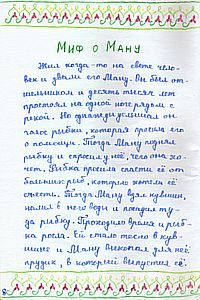 Миф о Ману
Жил когда-то на свете чело-
век и звали его Ману. Он был от-
шельником и десять тысяч лет
простоял на одной ноге рядом с
рекой. Но однажды услышал он
голос рыбки, которая просила его
о помощи. Тогда Ману поднял
рыбку и спросил у неё, чего она хо-
чет. Рыбка просила спасти её от
больших рыб, которые хотели её
съесть. Тогда Ману взял кувшин,
налил в него воды и посадил ту-
да рыбку. Проходило время и рыб-
ка росла. Ей стало тесно в кув-
шине и Ману выкопал для неё
прудик, в который выпустил её.
8